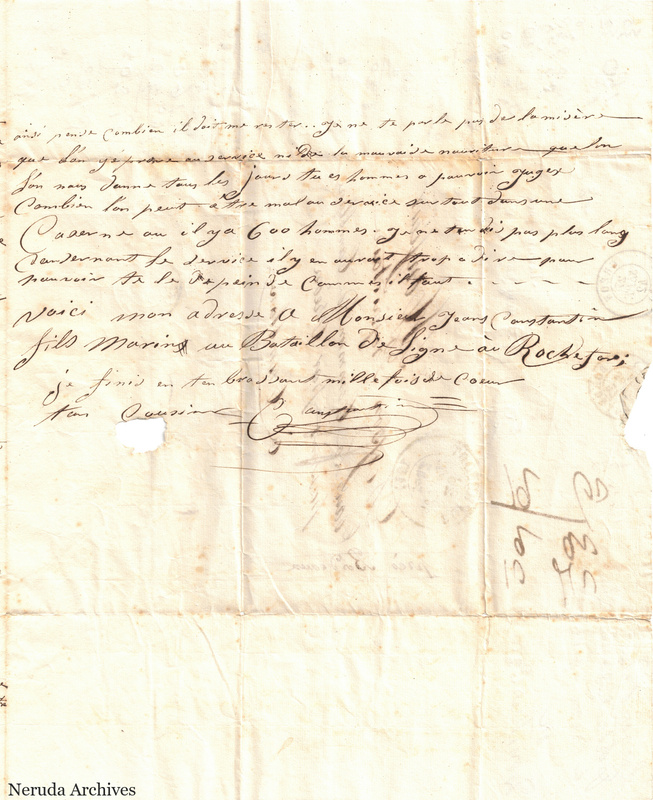 ainsi pense combien il doit me rester.. je ne te parle pas de la misère
que l'on géprove au service ni de la mauvaise nouriture que lon
l'on nous donne tous les jours tu es hommes a pouvoir jugez
Combien l'on peut être mal au service surtout dans une
Caserne au il ya 600 hommes. je ne ten di pas plus long
Consernant le service il y en auroit trop a dire pour
pouvoir te le depeindre commes il faut
voici mon adresse a Monsieur Jean Constantin
fils Marin au Bataillon de Ligne à Rochefort
je finis en tan brassant mille fois de Coeur
ton Cousin Constantin
Neruda Archives